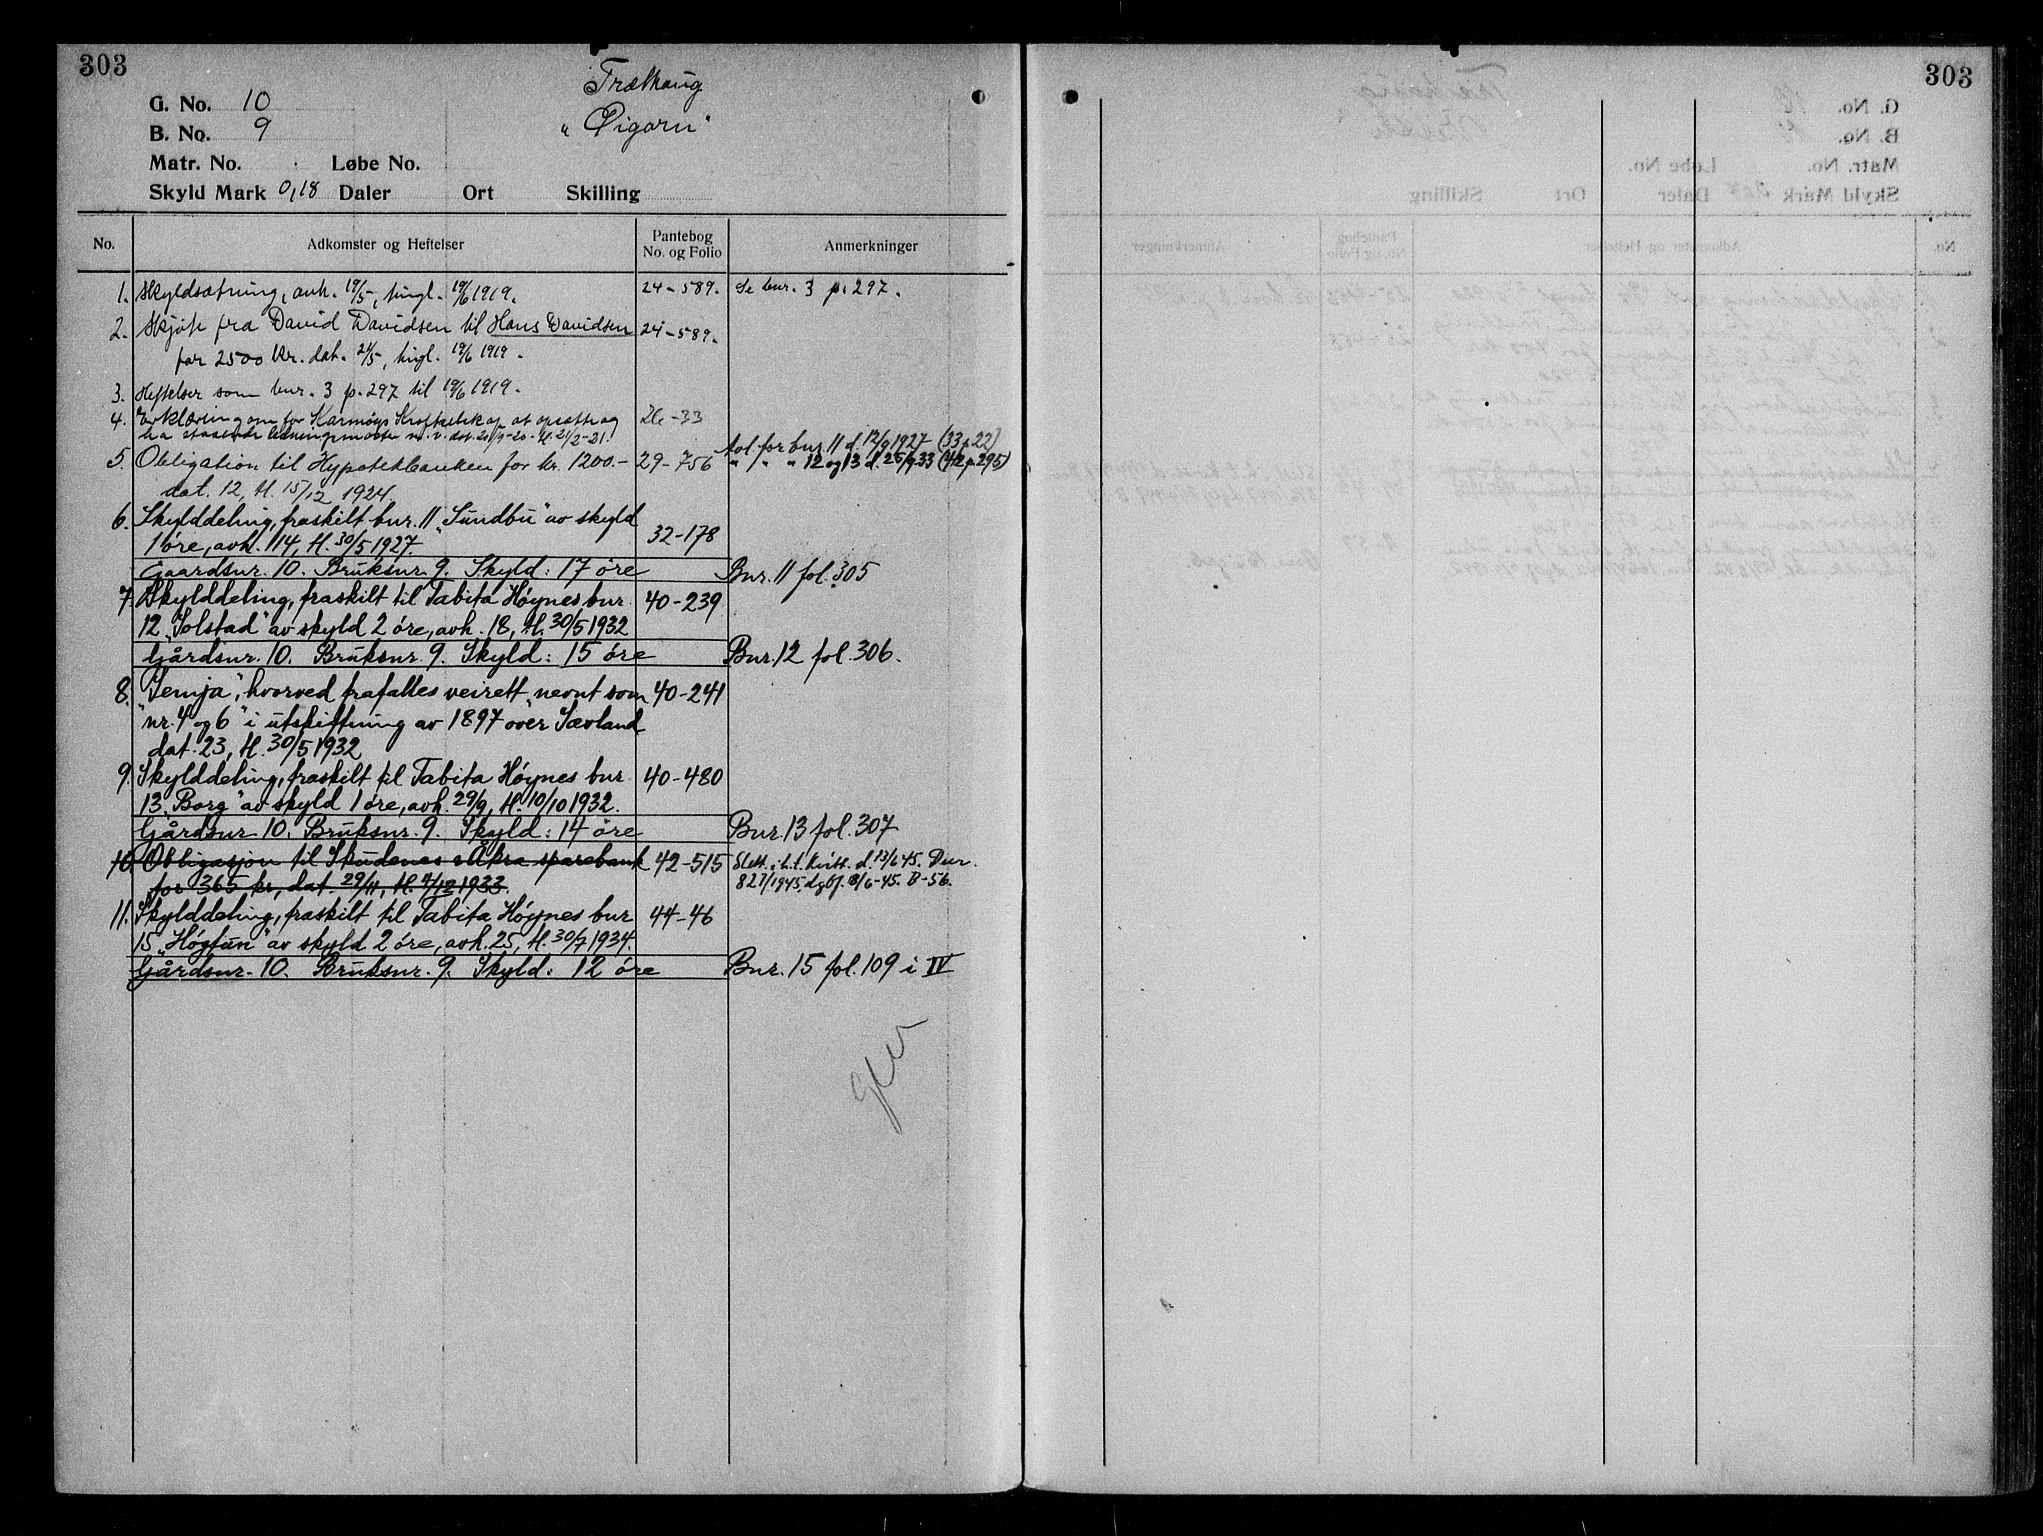 303
G. No. 10
Trælhaug
B. No. 9
„Øigarn"
Matr. No. Løbe No.
Skyld Mark 0,18 Daler Ort Skilling
No. Adkomster og Heftelser Pantebog No. og Folio Anmerkninger
1. Skyldsætning, avh. 19/5, tingl. 19/6 1919. 24-589. Se bnr. 3 p. 297.
2. Skjøte fra David Davidsen til Hans Davidsen 24-589.
for 2500 Kr. dat. 21/5, tingl. 19/6 1919.
3. Heftelser som bnr. 3 p. 297 til 19/6 1919.
4. Erklæring om for Karmøys Kraftselskap at opsætte og 26-33
ha staaende ledningsmaster m.v. dat. 20/9-20. tl. 21/2-21.
Aol. for bnr. 11 d. 12/9 1927 (33 p 22)
5. Obligation til Hypotekbanken for kr. 1200.- 29-756 " " " 12 og 13 d. 25/9.33 (42 p. 295)
dat. 12, tl. 15/12 1924.
6. Skylddeling, fraskilt bnr. 11 „Sundbu" av skyld
1 øre, avh. 14, tl. 30/5 1927. 32-178
Gaardsnr. 10. Bruksnr. 9. Skyld: 17 øre Bnr. 11 fol. 305
7. Skylddeling, fraskilt til Tabita Høynes bnr. 40-239
12 „Solstad" av skyld 2 øre, avh. 18, tl. 30/5 1932
Gårdsnr. 10. Bruksnr. 9. Skyld: 15 øre Bnr. 12 fol. 306.
8. Semja", hvorved frafalles veirett, nevnt som 40-241
"nr. 4 og 6" i utskiftning av 1897 over Sævland
dat. 23, tl. 30/5 1932
9. Skylddeling, fraskilt til Tabita Høynes bnr. 40-480
13 „Borg" av skyld 1 øre, avh. 29/9, tl. 10/10 1932.
Gårdsnr. 10. Bruksnr. 9. Skyld: 14 øre Bnr. 13 fol. 307
10. Obligasjon til Skudenes & Åkra sparebank 42-515 Slett. i.h.t. kvitt. d. 13/6 45. Dnr.
for 365 kr, dat. 29/11, tl. 4/12 1933. 827/1945, dgbf. 8/6-45. B-56.
11. Skylddeling, fraskilt til Tabita Høynes bnr. 44-46
15 „Høgtun" av skyld 2 øre, avh. 25, tl. 30/7 1934.
Gårdsnr. 10. Bruksnr. 9. Skyld: 12 øre Bnr. 15 fol. 109 i IV
303